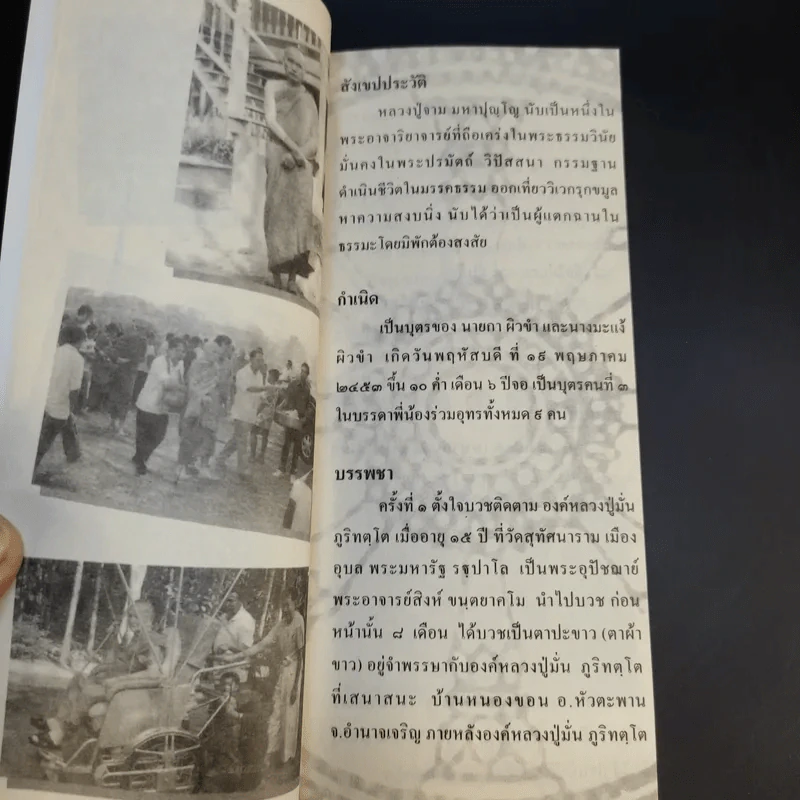 สังเขปประวัติ
หลวงปู่จาม มหาปุญฺโญ นับเป็นหนึ่งใน
พระอาจาริยาจารย์ที่ถือเคร่งในพระธรรมวินัย
มั่นคงในพระปรมัตถ์ วิปัสสนา กรรมฐาน
ดำเนินชีวิตในมรรคธรรม ออกเที่ยววิเวกรุกขมูล
หาความสงบนิ่ง นับได้ว่าเป็นผู้แตกฉานใน
ธรรมะโดยมิพักต้องสงสัย
กำเนิด
เป็นบุตรของ นายกา ผิวขำ และนางมะแง้
ผิวขำ เกิดวันพฤหัสบดี ที่ ๑๙ พฤษภาคม
๒๔๕๓ ขึ้น ๑๐ ค่ำ เดือน ๖ ปีจอ เป็นบุตรคนที่ ๓
ในบรรดาพี่น้องร่วมอุทรทั้งหมด ๙ คน
บรรพชา
ครั้งที่ ๑ ตั้งใจบวชติดตาม องค์หลวงปู่มั่น
ภูริทตฺโต เมื่ออายุ ๑๕ ปี ที่วัดสุทัศนาราม เมือง
อุบล พระมหารัฐ รฐฺปาโล เป็นพระอุปัชฌาย์
พระอาจารย์สิงห์ ขนฺตยาคโม นำไปบวช ก่อน
หน้านั้น ๘ เดือน ได้บวชเป็นตาปะขาว (ตาผ้า
ขาว) อยู่จำพรรษากับองค์หลวงปู่มั่น ภูริทตฺโต
ที่เสนาสนะ บ้านหนองขอน อ.หัวตะพาน
จ.อำนาจเจริญ ภายหลังองค์หลวงปู่มั่น ภูริทตฺโต